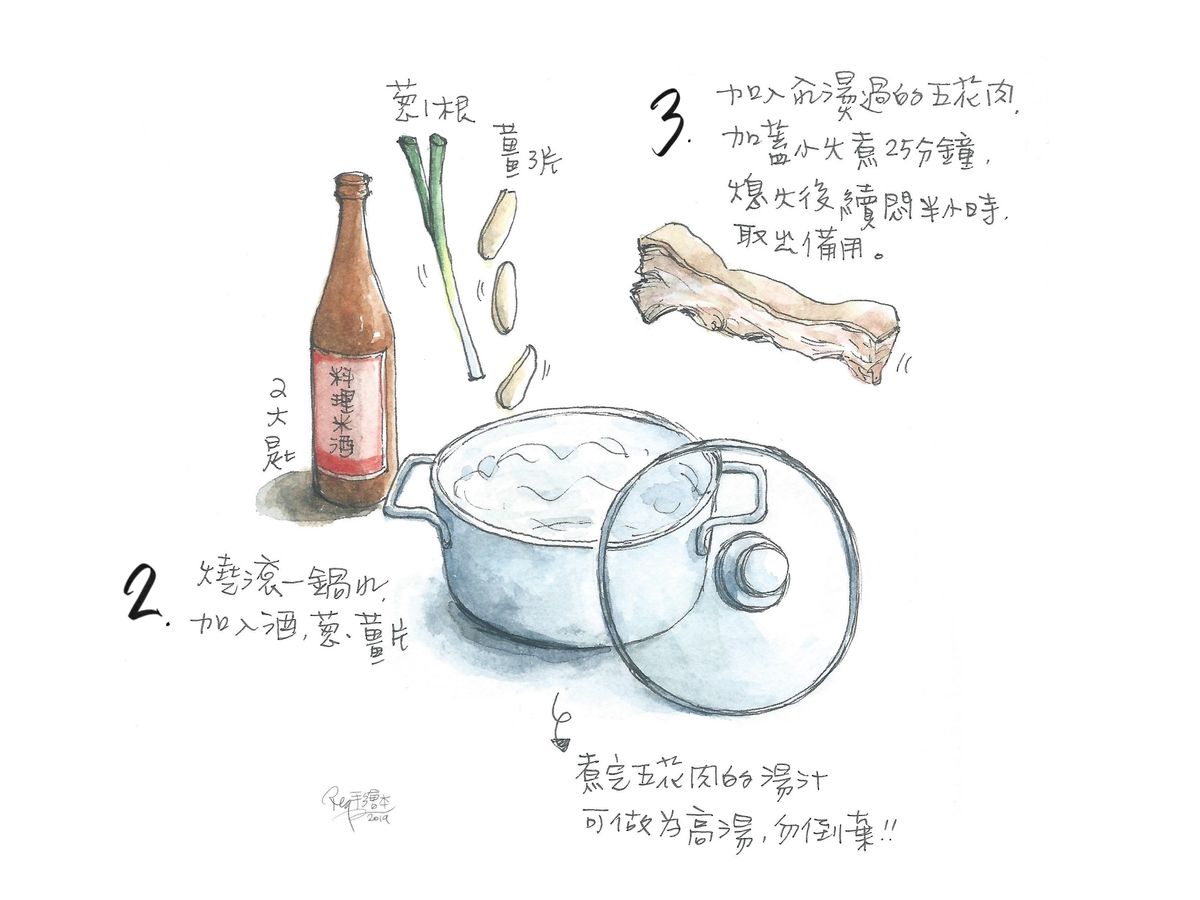 葱1根
薑3片
料理米酒
2大匙
2.
燒滾一鍋水,
加入酒,葱、薑片
3.
加入汆燙過的五花肉,
加蓋小火煮25分鐘,
熄火後續悶半小時,
取出備用。
煮完五花肉的湯汁
可做為高湯,勿倒棄!!
手繪本
2019